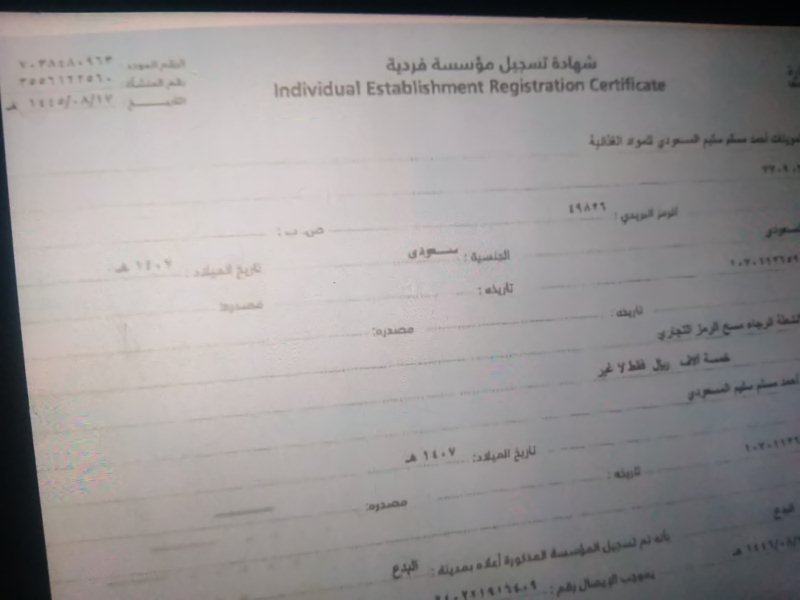 شهادة تسجيل مؤسسة فردية
Individual Establishment Registration Certificate
الرقم الموحد ٧٠٣٨٤٨٠٩٦٣
رقم المنشأة ٣٥٥٦١٢٢٥٦٠
التاريخ ١٤٤٥/٠٨/١٧ هـ
أحمد مسلم سليم المسعودي للمواد الغذائية
الرمز البريدي : ٤٩٨٢٦ ص. ب :
الجنسية : سعودى تاريخ الميلاد : ١٤٠٧ هـ
تاريخه : مصدرها
تاريخه : مصدره:
مسح الرمز التجاري
خمسة آلاف ريال فقط لا غير
أحمد مسلم سليم المسعودي
تاريخ الميلاد: ١٤٠٧ هـ
تاريخه : مصدره:
البدع
بأنه تم تسجيل المؤسسة المذكورة أعلاه بمدينة : البدع
بموجب الإيصال رقم :